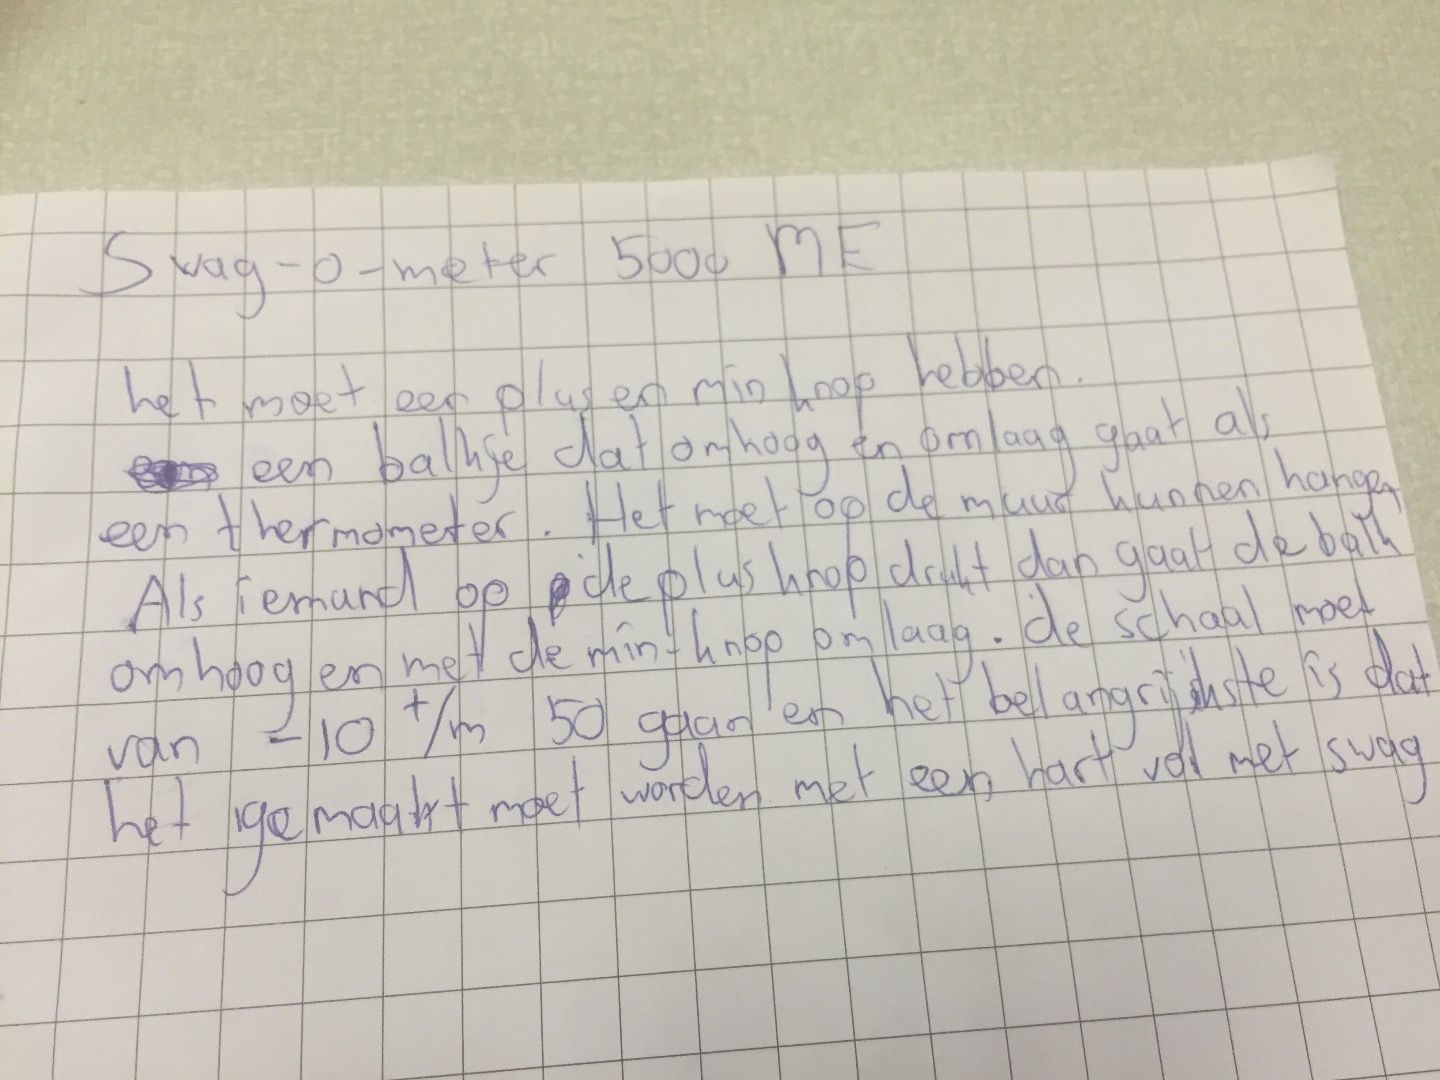 Swag-o-meter 5000 ME
het moet een plus en min knop hebben.
een balkje dat omhoog en omlaag gaat als
een thermometer. Het moet op de muur kunnen hangen
Als iemand op de plus knop drukt dan gaat de balk
omhoog en met de min-knop omlaag. de schaal moet
van -10 t/m 50 gaan en het belangrijkste is dat
het gemaakt moet worden met een hart vol met swag